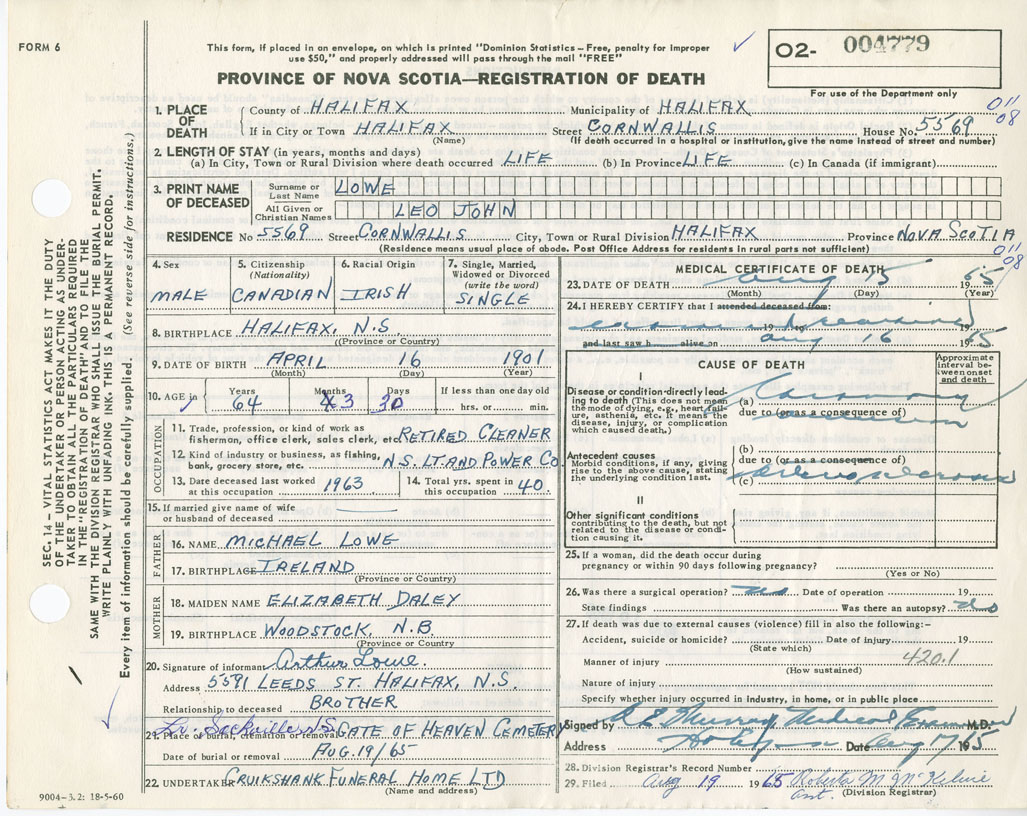 FORM 6
This form, if placed in an envelope, on which is printed "Dominion Statistics – Free, penalty for improper
use $50," and properly addressed will pass through the mail "FREE"
O2- 004779
For use of the Department only
PROVINCE OF NOVA SCOTIA—REGISTRATION OF DEATH
011
08
SEC. 14 – VITAL STATISTICS ACT MAKES IT THE DUTY
OF THE UNDERTAKER OR PERSON ACTING AS UNDER-
TAKER TO OBTAIN ALL THE PARTICULARS REQUIRED
IN THE "REGISTRATION OF DEATH" AND TO FILE THE
SAME WITH THE DIVISION REGISTRAR WHO SHALL ISSUE THE BURIAL PERMIT.
WRITE PLAINLY WITH UNFADING INK. THIS IS A PERMANENT RECORD.
Every item of information should be carefully supplied. (See reverse side for instructions.)
1. PLACE OF DEATH
County of HALIFAX Municipality of HALIFAX
If in City or Town HALIFAX Street CORNWALLIS House No. 5569
(Name) (If death occurred in a hospital or institution, give the name instead of street and number)
2. LENGTH OF STAY (in years, months and days)
(a) In City, Town or Rural Division where death occurred LIFE (b) In Province LIFE (c) In Canada (if immigrant)
3. PRINT NAME OF DECEASED
Surname or Last Name LOWE
All Given or Christian Names LEO JOHN
RESIDENCE No 5569 Street CORNWALLIS City, Town or Rural Division HALIFAX Province NOVA SCOTIA
(Residence means usual place of abode. Post Office Address for residents in rural parts not sufficient)
011
08
4. Sex
MALE
5. Citizenship
(Nationality)
CANADIAN
6. Racial Origin
IRISH
7. Single, Married,
Widowed or Divorced
(write the word)
SINGLE
8. BIRTHPLACE HALIFAX, N.S.
(Province or Country)
9. DATE OF BIRTH APRIL 16 1901
(Month) (Day) (Year)
10. AGE in Years Months Days If less than one day old
64 3 30 hrs. or min.
OCCUPATION
11. Trade, profession, or kind of work as
fisherman, office clerk, sales clerk, etc. RETIRED CLEANER
12. Kind of industry or business, as fishing,
bank, grocery store, etc. N.S. LT. AND POWER Co
13. Date deceased last worked
at this occupation 1963
14. Total yrs. spent in
this occupation 40
15. If married give name of wife
or husband of deceased
FATHER
16. NAME MICHAEL LOWE
17. BIRTHPLACE IRELAND
(Province or Country)
MOTHER
18. MAIDEN NAME ELIZABETH DALEY
19. BIRTHPLACE WOODSTOCK, N.B.
(Province or Country)
20. Signature of informant Arthur Lowe.
Address 5591 LEEDS ST. HALIFAX, N.S.
Relationship to deceased BROTHER
Lr. Sackville N.S.
21. Place of burial, cremation or removal GATE OF HEAVEN CEMETERY
Date of burial or removal AUG. 19/65
22. UNDERTAKER CRUIKSHANK FUNERAL HOME LTD
(Name and address)
9004-3.2: 18-5-60
MEDICAL CERTIFICATE OF DEATH
23. DATE OF DEATH Aug 15 1965
(Month) (Day) (Year)
24. I HEREBY CERTIFY that I attended deceased from:
19 19
and last saw h alive on Aug 16 1965
CAUSE OF DEATH
Approximate
interval be-
tween onset
and death
I
Disease or condition directly lead-
ing to death (This does not mean
the mode of dying, e.g., heart fail-
ure, asthenia, etc. It means the
disease, injury, or complication
which caused death.)
(a) Coronary
due to (or as a consequence of)
occlusion
Antecedent causes
Morbid conditions, if any, giving
rise to the above cause, stating
the underlying condition last.
(b)
due to (or as a consequence of)
(c)
II
Other significant conditions
contributing to the death, but not
related to the disease or condi-
tion causing it.
25. If a woman, did the death occur during
pregnancy or within 90 days following pregnancy?
(Yes or No)
26. Was there a surgical operation? no Date of operation 19
State findings Was there an autopsy? no
27. If death was due to external causes (violence) fill in also the following:-
Accident, suicide or homicide? Date of injury 19
(State which)
Manner of injury 420.1
(How sustained)
Nature of injury
Specify whether injury occurred in industry, in home, or in public place
Signed by Murray Medical Examiner M.D.
Address Date Aug 17 1965
28. Division Registrar's Record Number
29. Filed Aug 19 1965 Roberta M. McKelvie
Asst. (Division Registrar)